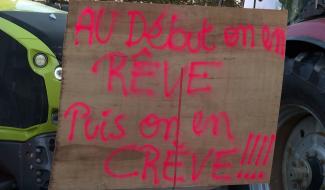 AU Début on en
RÊVE
Puis on en
CRÈVE!!!!